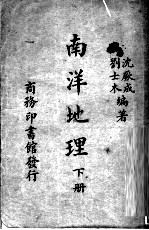 沈厥成
劉士木 編著
南洋地理 下册
商務印書館發行